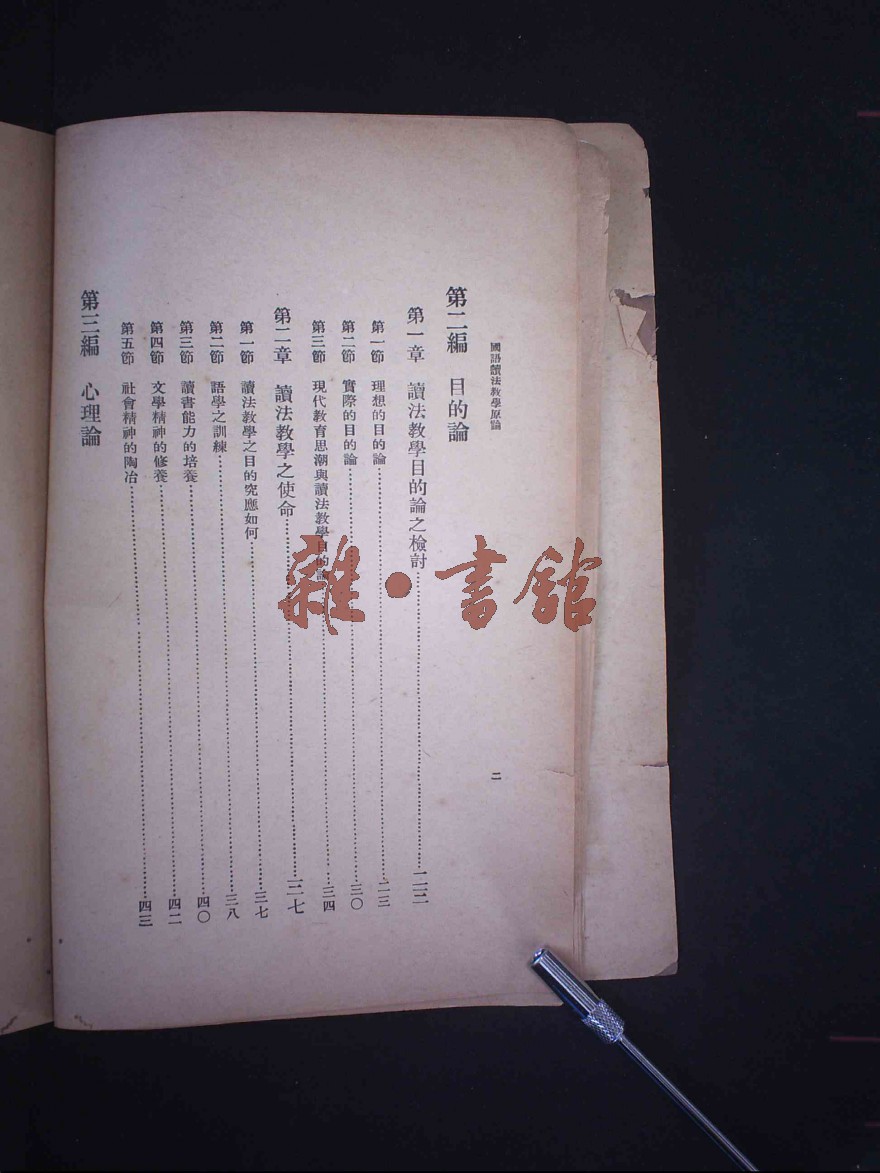 國語讀法教學原論
二
第二編 目的論
第一章 讀法教學目的論之檢討……二三
第一節 理想的目的論……二三
第二節 實際的目的論……三〇
第三節 現代教育思潮與讀法教學目的論……三四
第二章 讀法教學之使命……三七
第一節 讀法教學之目的究應如何……三七
第二節 語學之訓練……三八
第三節 讀書能力的培養……四〇
第四節 文學精神的修養……四二
第五節 社會精神的陶冶……四三
第三編 心理論
雜·書館